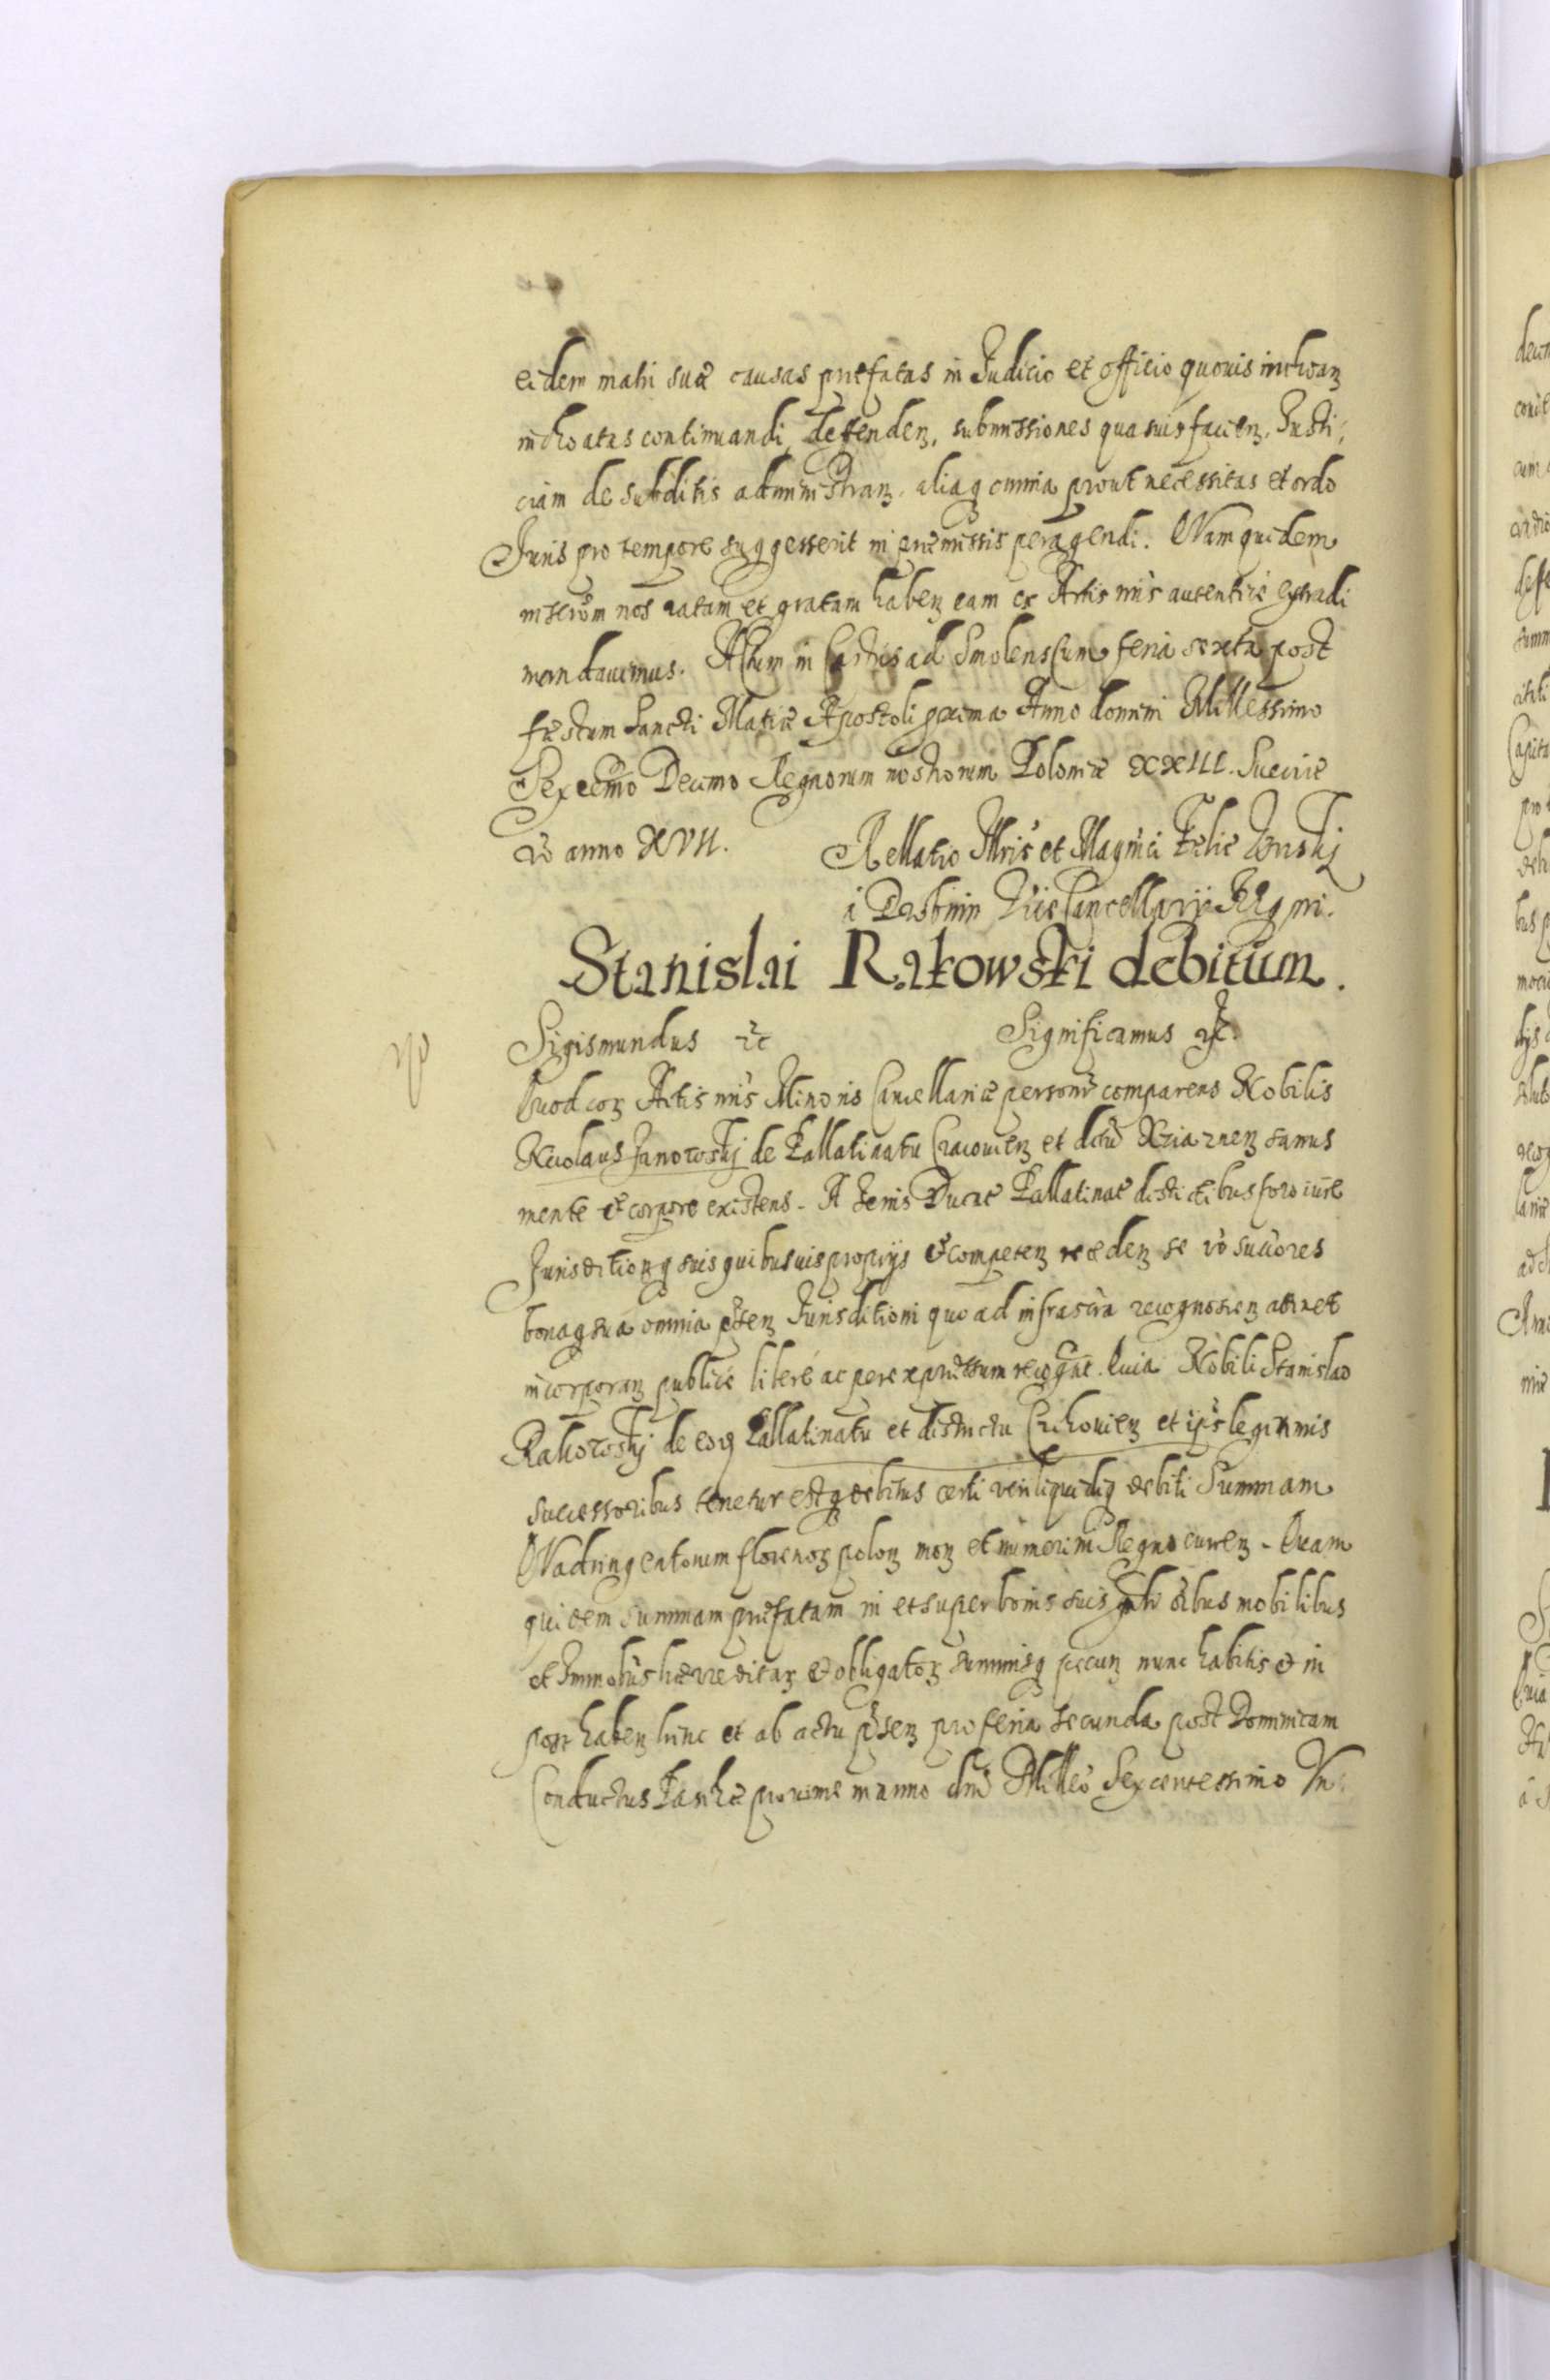 eidem matri suæ causas præfatas in Judicio et officio quovis inchoanẓ
inchoatas continuandi, defendenẓ, submissiones quasuis facienẓ, Justi,
ciam de subditis administranẓ, aliaq omnia prout necessitas et ordo
Juris pro tempore suggesserit in præmissis peragendi. Quam quidem
nos ratam et gratam habenẓ eam ex Actis nris autentice extradi
mandavimus. Actum in Castris ad Smolenscum feria sexta post
festum Sancti Matiæ Apostoli proxima Anno domini Millessimo
Sexcemo Decimo Regnorum nostrorum Poloniæ XXIII. Sueciæ
vo anno XVII. Rellatio Illris et Magnci Felic Kriski
a Drobnin Vice Cancellarij Regni.
Stanislai Rakowski debitum.
Sigismundus etc Significamus etc.
Quod corẓ Actis nris Minoris Cancellariæ personr comparens Nobilis
Nicolaus Janowskj de Pallatinatu Cracovienẓ et dictu Xziaznenẓ sanus
mente et corpore existens. A Terris Ducat Pallatinat districtibus foro iure
Jurisditionq suis quibusuis proprijs et competenẓ recedenẓ se vo succores
bonaq sua omnia pntenẓ Jurisditioni quo ad infrascra recognoscenẓ attinet
incorporanẓ publice libere ac per expressum recognt. Quia Nobili Stanislao
Rakowskj de eoq Pallatinatu et districtu Czchovienẓ et ipis legitimis
successoribus tenetur estq debitus certi veri liquidiq debiti Summam
Quadringentorum florenoẓ polonẓ monẓ et numeri in Regno currenẓ. Quam
quidem summam præfatam in et super bonis suis gntr oibus mobilibus
et Immobus hæreditarẓ et obligatoẓ summisq pecunẓ nunc habitis et in
post habenẓ hinc et ab actu pntsenẓ pro feria secunda post Dominicam
Conductus Paschæ proxime in anno dni Milleo Sexcentessimo Un